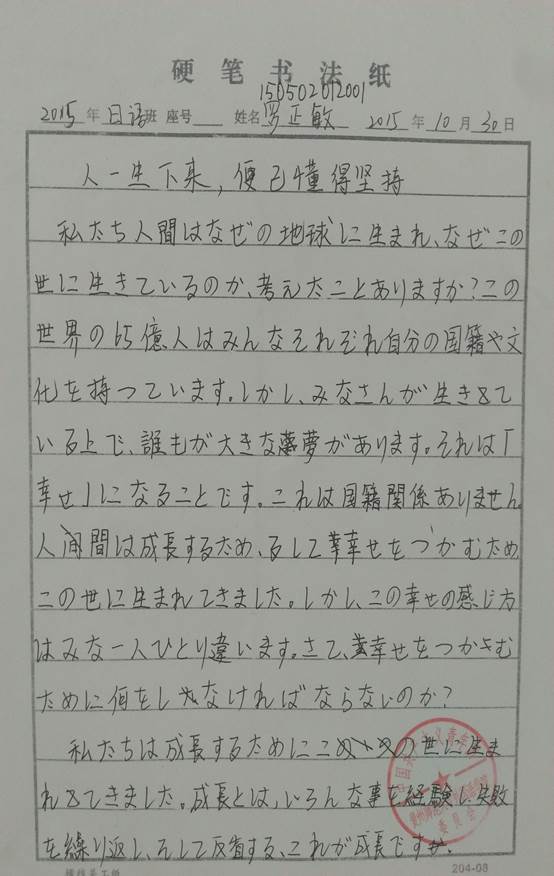 硬笔书法纸
150502012001
2015年日语班 座号 姓名罗正敏 2015年10月30日
人一生下来，便已懂得坚持
私たち人間はなぜの地球に生まれ、なぜこの
世に生きているのか、考えたことありますか？この
世界の65億人はみんなそれぞれ自分の国籍や文
化を持っています。しかし、みなさんが生きて
いる上で、誰もが大きな夢があります。それは「
幸せ」になることです。これは国籍関係ありません。
人間は成長するため、そして幸せをづかむため
この世に生まれてきました。しかし、この幸せの感じ方
はみな一人ひとり違います。さて、幸せをつかむ
ために何をしなければならないのか？
私たちは成長するためにこの世に生ま
れてきました。成長とは、いろんな事を経験し、失敗
を繰り返し、そして反省する、これが成長ですか
204-08